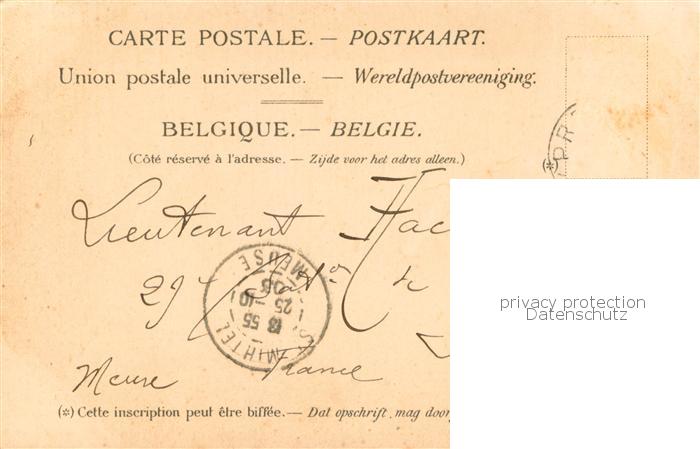 CARTE POSTALE. — POSTKAART.
Union postale universelle. — Wereldpostvereeniging.
BELGIQUE. — BELGIE.
(Côté réservé à l'adresse. — Zijde voor het adres alleen.)
Lieutenant Hac
29
ST MIHIEL
MEUSE
55
25 -10
Meuse France
(*) Cette inscription peut être biffée. — Dat opschrift, mag door
(*)
privacy protection
Datenschutz